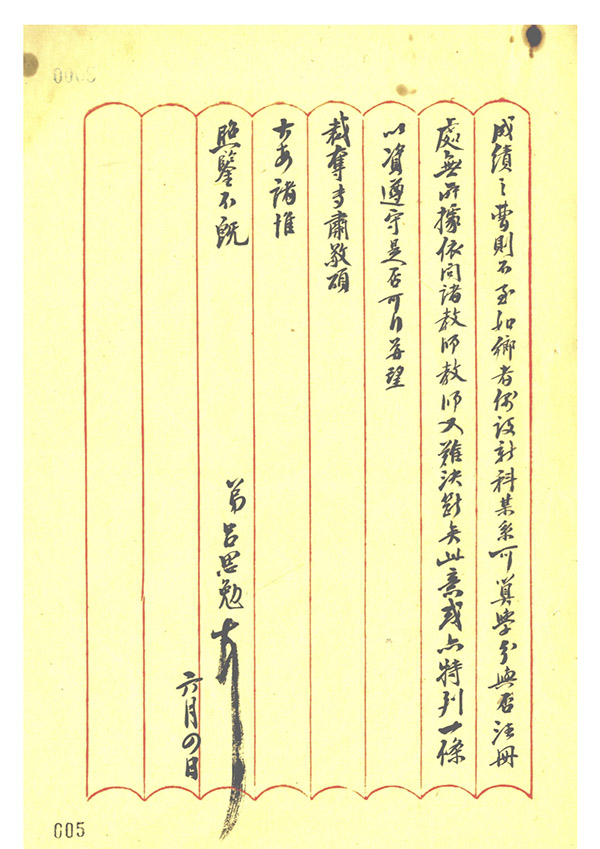 成績之曹則不至如鄉者設新科某系可算學分與否注冊
處無所據依問諸教師教師又難決斷矣此意或亦特列一條
以資遵守是否可行并望
裁奪專肅敬頌
大安諸惟
照鑒不既
弟呂思勉
六月四日
005